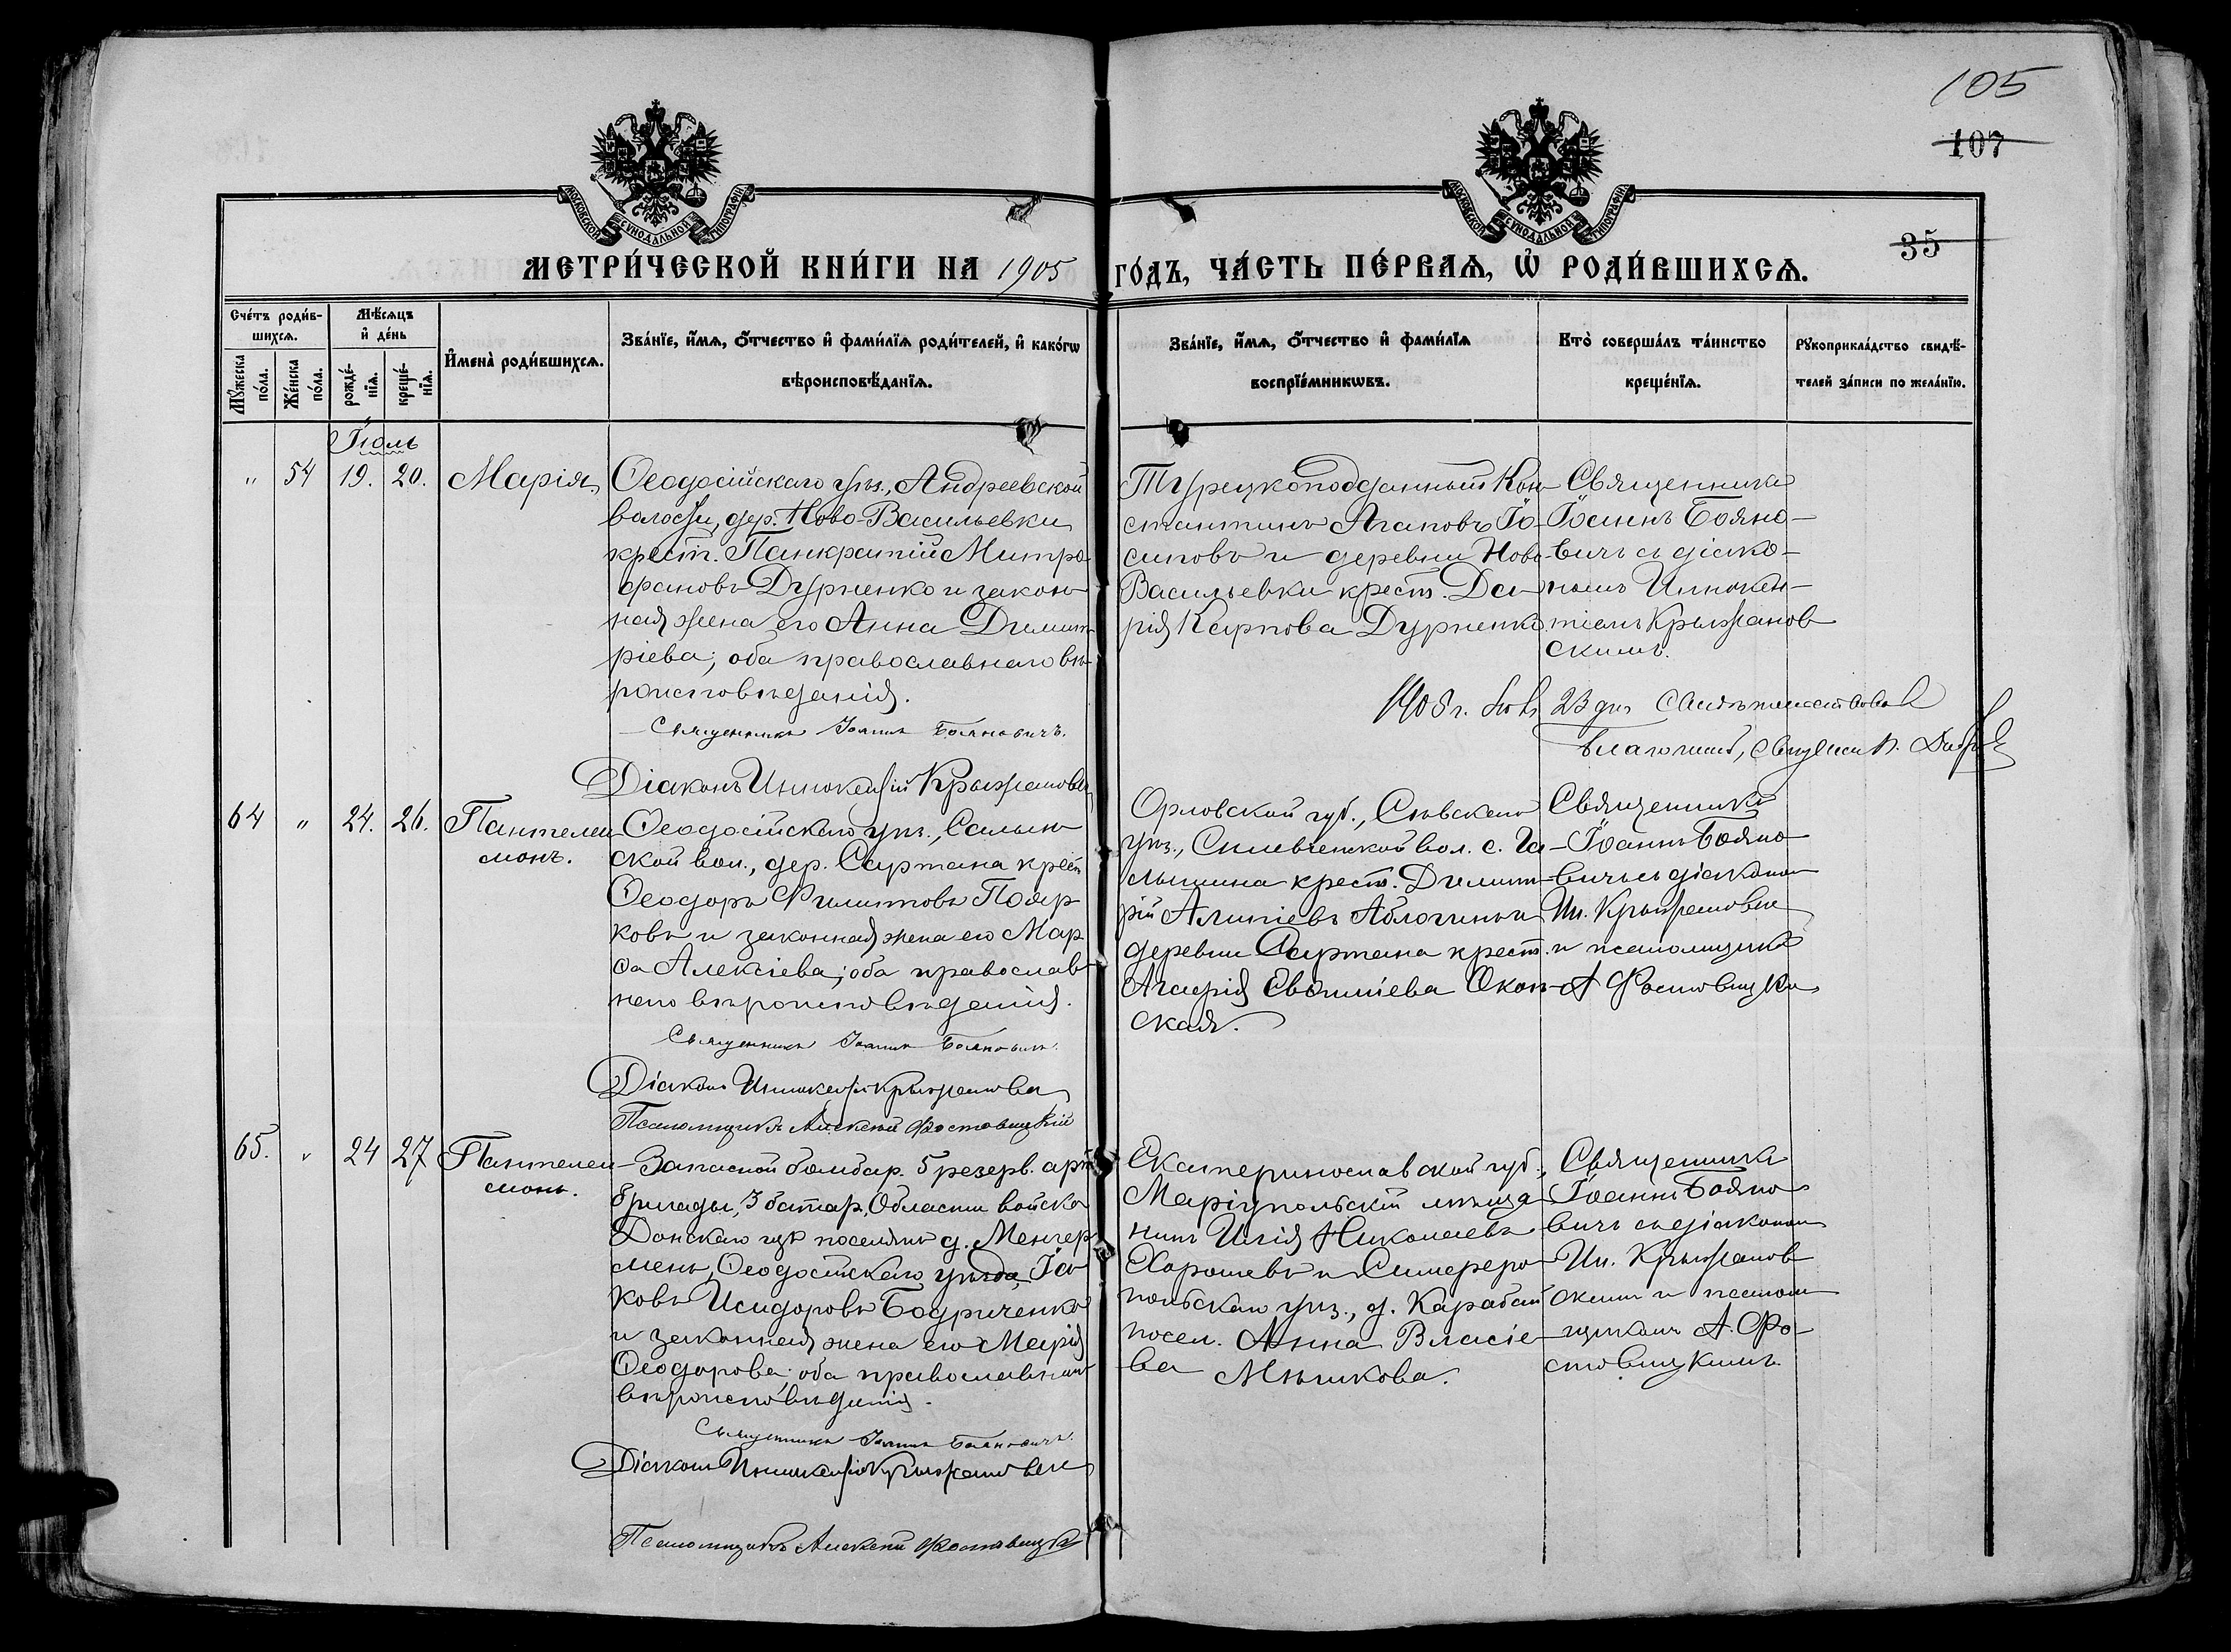 105
107
35
МОСКОВСКОЙ СУНОДАЛЬНОЙ ТИПОГРАФІИ
МОСКОВСКОЙ СУНОДАЛЬНОЙ ТИПОГРАФІИ
МЕТРИ́ЧЕСКОЙ КНИ́ГИ НА 1905
ГО́ДЪ, ЧА́СТЬ ПЕ́РВАѦ, Ѡ҆ РОДИ́ВШИХСѦ.
Сче́тъ роди́в-
шихсѧ.
Мѣ́сѧцъ
и҆ де́нь
И҆мена̀ роди́вшихсѧ.
Зва́нїе, и҆́мѧ, ѻ҆́тчество и҆ фами́лїѧ роди́телей, и҆ како́гѡ
вѣроисповѣ́данїѧ.
Зва́нїе, и҆́мѧ, ѻ҆́тчество и҆ фами́лїѧ
воспрїе́мникѡвъ.
Кто̀ соверша́лъ та́инство
креще́нїѧ.
Рꙋкоприкла́дство свидѣ́-
телей за́писи по жела́нїю.
Мꙋ́жеска
по́ла.
Же́нска
по́ла.
рожде́-
нїѧ.
креще́-
нїѧ.
Іюль
" 54 19. 20. Марія
Ѳеодосійскаго уѣз., Андреевской
волости, дер. Ново-Васильевки
крест. Панкратій Митро
фановъ Дурненко и закон
ная жена его Анна Димит
ріева; оба православнаго вѣ-
роисповѣданія.
Священникъ Іоаннъ Бояновичъ.
Діаконъ Иннокентій Крыжановск
Турецкоподданный Кон
стантинъ Агаповъ Іо-
сиповъ и деревни Ново
Васильевки крест. Да
рія Карпова Дурненко
Священникъ
Іоаннъ Бояно-
вичъ съ діако-
номъ Иннокен-
тіемъ Крыжанов
скимъ.
23 дня свидѣтельствовал
Благочинный, священ.
64 " 24. 26. Пантелеи-
монъ.
Ѳеодосійскаго уѣз., Салын
ской вол., дер. Сартана крест
Ѳеодоръ Филиповъ Пояр
ковъ и законная жена его Мар
ѳа Алексіева; оба православ
наго вѣроисповѣданія.
Священникъ Іоаннъ Бояновичъ.
Діаконъ Иннокентій Крыжановск
Псаломщикъ Алексѣй Фостовицкій
Орловской губ., Сѣвскаго
уѣз., вол. с. Га-
лышина крест. Димит
рій Алипіевъ Аблогинъ и
деревни Сартана крест.
Агафія Евѳиміева Окон-
ская.
Священникъ
Іоаннъ Бояно
вичъ съ діаконом
Ин. Крыжановск
и псаломщикъ
А Фостовицки
65. " 24 27 Пантелеи-
монъ.
Запасной бомбар. 5 резерв. арт
бригады, 3 батар, Области войска
Донскаго поселянъ д. Менгер
менъ, Ѳеодосійскаго уѣзда, Іа
ковъ Исидоровъ Бодриченко
и законная жена его Марія
Ѳеодорова; оба православнаго
вѣроисповѣданія.
Священникъ Іоаннъ Бояновичъ.
Діаконъ Иннокентій Крыжановск
Псаломщикъ Алексѣй Фостовицкій
Екатеринославской губ.,
Маріупольскій мѣща
нинъ Илія Николаевъ
Харошевъ и Симферо
польскаго уѣз., д. Карабай
посел. Анна Власіе
ва Мѣшкова.
Священникъ
Іоаннъ Бояно
вичъ съ діаконом
Ин. Крыжанов
скимъ и псалом
щикомъ А. Фо-
стовицкимъ